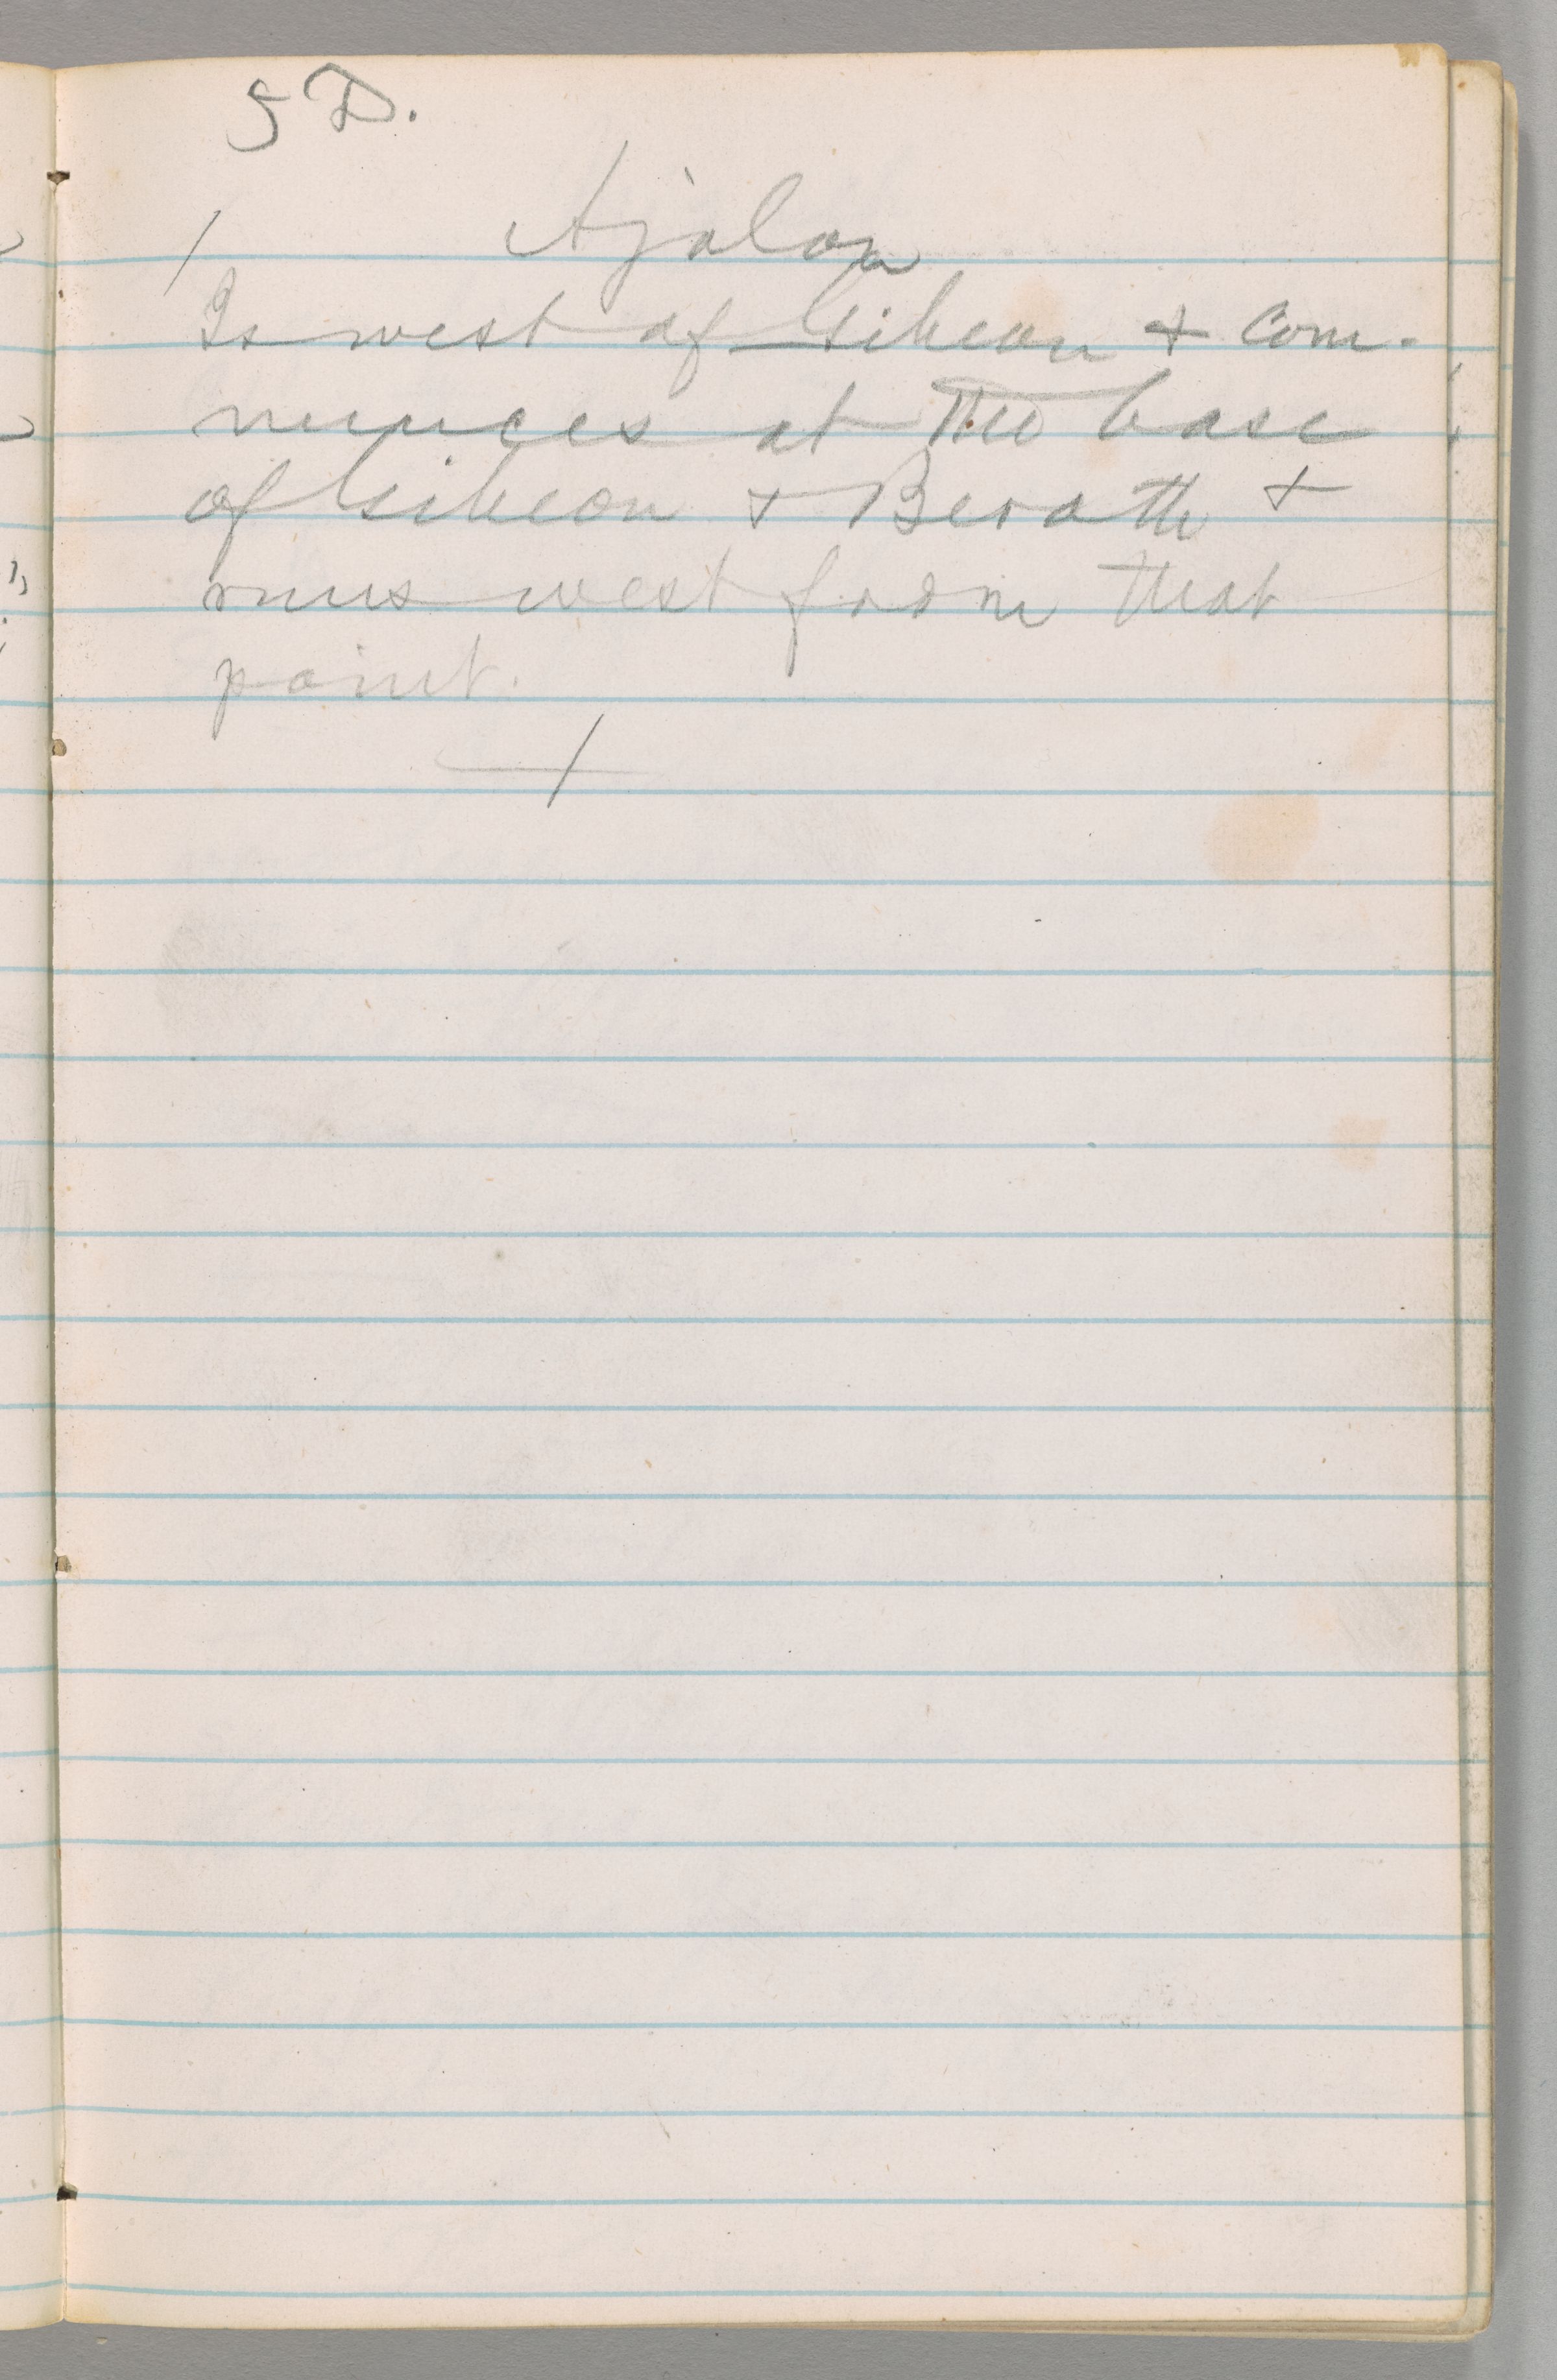 5 D.
Ajalon
Is west of Gibeon + com-
mences at the base
of Gibeon + Beroth +
runs west from that
point.